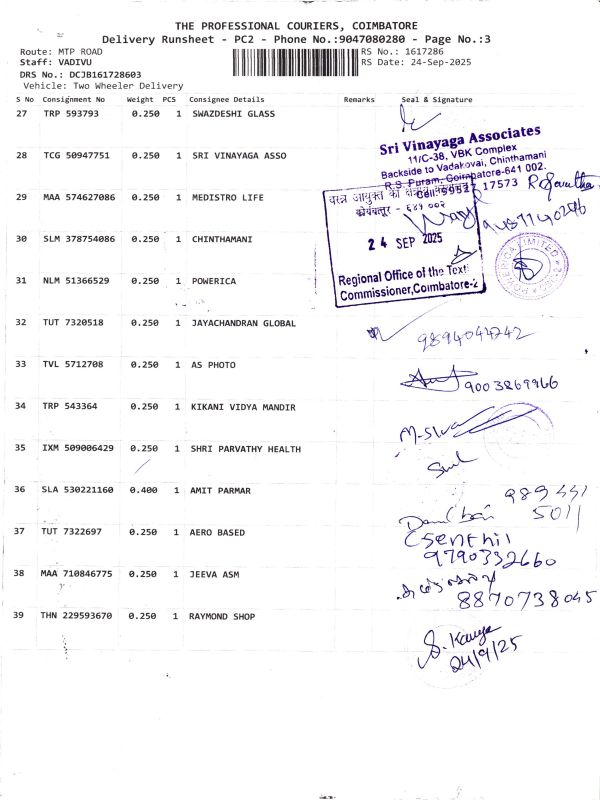 THE PROFESSIONAL COURIERS, COIMBATORE
Delivery Runsheet - PC2 - Phone No.:9047080280 - Page No.:3
Route: MTP ROAD
RS No.: 1617286
Staff: VADIVU
RS Date: 24-Sep-2025
DRS No.: DCJB161728603
Vehicle: Two Wheeler Delivery
S No Consignment No Weight PCS Consignee Details Remarks Seal & Signature
27 TRP 593793 0.250 1 SWAZDESHI GLASS
Sri Vinayaga Associates
11/C-38, VBK Complex
Backside to Vadakovai, Chinthamani
R.S. Puram, Coimbatore-641 002.
28 TCG 50947751 0.250 1 SRI VINAYAGA ASSO
29 MAA 574627086 0.250 1 MEDISTRO LIFE
17573
कोयंबत्तूर - ६४१ ००२
24 SEP 2025
Regional Office of the Texti
Commissioner,Coimbatore-2
30 SLM 378754086 0.250 1 CHINTHAMANI
31 NLM 51366529 0.250 1 POWERICA
POWERICA LIMITED
32 TUT 7320518 0.250 1 JAYACHANDRAN GLOBAL
9894044242
33 TVL 5712708 0.250 1 AS PHOTO
9003869966
34 TRP 543364 0.250 1 KIKANI VIDYA MANDIR
M-Siva
35 IXM 509006429 0.250 1 SHRI PARVATHY HEALTH
36 SLA 530221160 0.400 1 AMIT PARMAR
989441
5011
37 TUT 7322697 0.250 1 AERO BASED
Csenthil
9790332660
38 MAA 710846775 0.250 1 JEEVA ASM
8870738045
39 THN 229593670 0.250 1 RAYMOND SHOP
S. Kavya
24/9/25